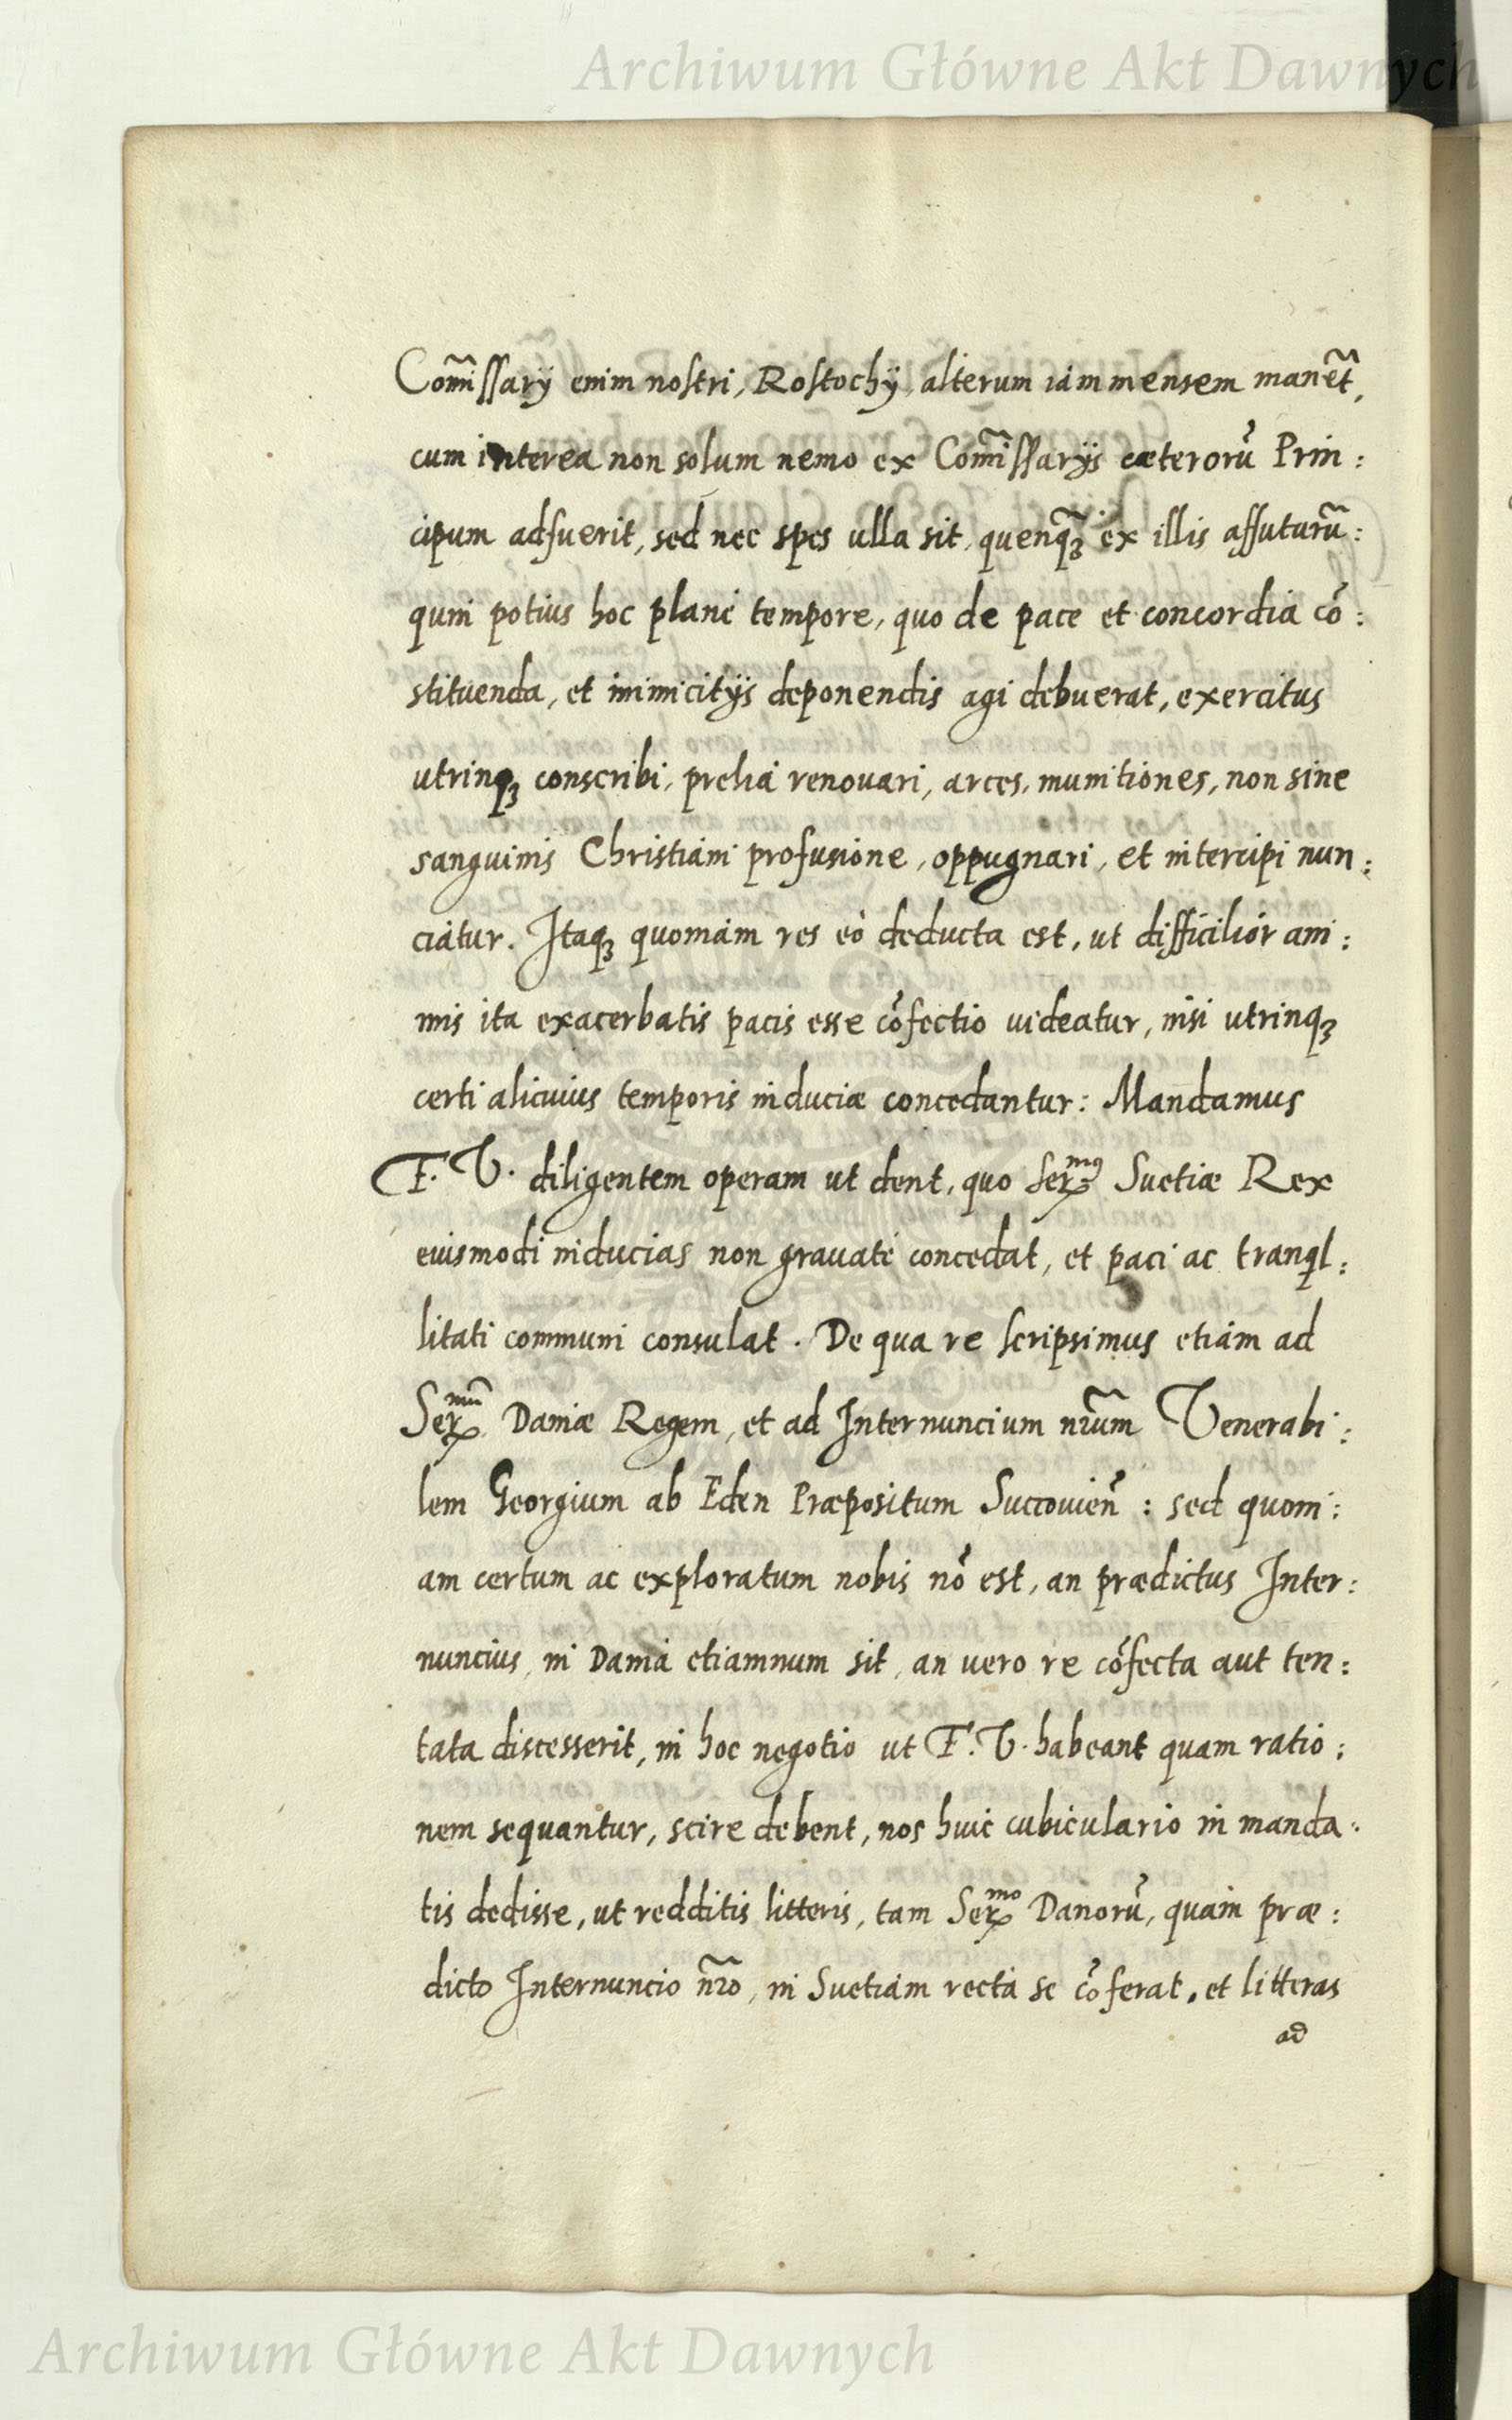 Archiwum Główne Akt Dawnych
Com̃issarÿ enim nostri, Rostochÿ, alterum iam mensem manẽt,
cum interea non solum nemo ex Com̃issarÿs cæterorũ Prin:
cipum adfuerit, sed nec spes ulla sit, quenq̃ꝫ ex illis affuturũ:
quin potius hoc planè tempore, quo de pace et concordia cõ:
stituenda, et inimicitÿs deponendis agi debuerat, exercitus
utrinqꝫ conscribi, prelia renouari, arces, munitiones, non sine
sanguinis Christiani profusione, oppugnari, et intercipi nun:
ciatur. Itaqꝫ quoniam res eò deducta est, ut difficilior ani:
mis ita exacerbatis pacis esse cõfectio uideatur, nisi utrinqꝫ
certi alicuius temporis induciæ concedantur: Mandamus
F. V. diligentem operam ut dent, quo Ser.mus Suetiæ Rex
euismodi inducias non grauatè concedat, et paci ac tranql:
litati communi consulat. De qua re scripsimus etiam ad
Ser.mũ Daniæ Regem, et ad Internuncium nr̃um Venerabi:
lem Georgium ab Eden Præpositum Succouieñ: sed quoni:
am certum ac exploratum nobis nõ est, an prædictus Inter:
nuncius, in Dania etiamnum sit, an uero re cõfecta aut ten:
tata discesserit, in hoc negotio ut F. V. habeant quam ratio:
nem sequantur, scire debent, nos huic cubiculario in manda:
tis dedisse, ut redditis litteris, tam Ser.mo Danorũ, quam præ:
dicto Internuncio nr̃o, in Suetiam rectà se cõferat, et litteras
ad
Archiwum Główne Akt Dawnych